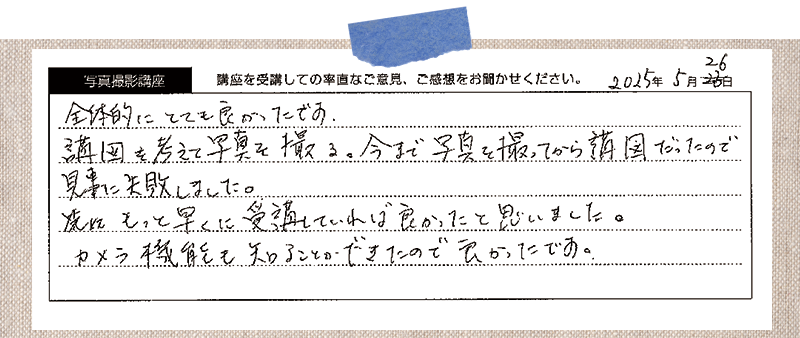 写真撮影講座 講座を受講しての率直なご意見、ご感想をお聞かせください。 2025年 5月26日
全体的にとても良かったです.
講図を考えて写真を撮る。今まで写真を撮ってから講図だったので
見事に失敗しました。
もっと早くに受講していれば良かったと思いました。
カメラ機能も知ることができたので良かったです。